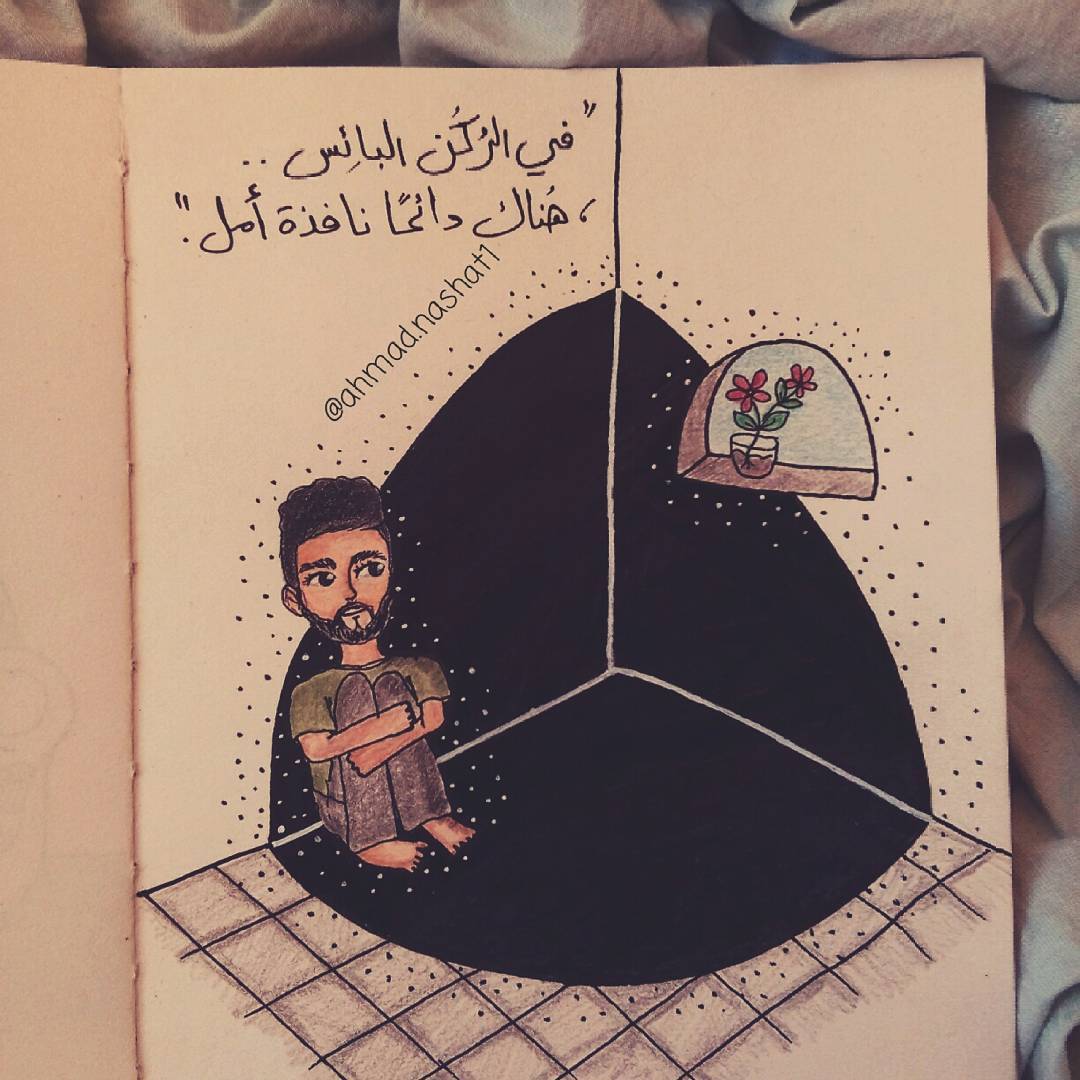 "في الرُكُن البائِس ..
، هُناك دائمًا نافذة أمل."
@ahmad.nashat1